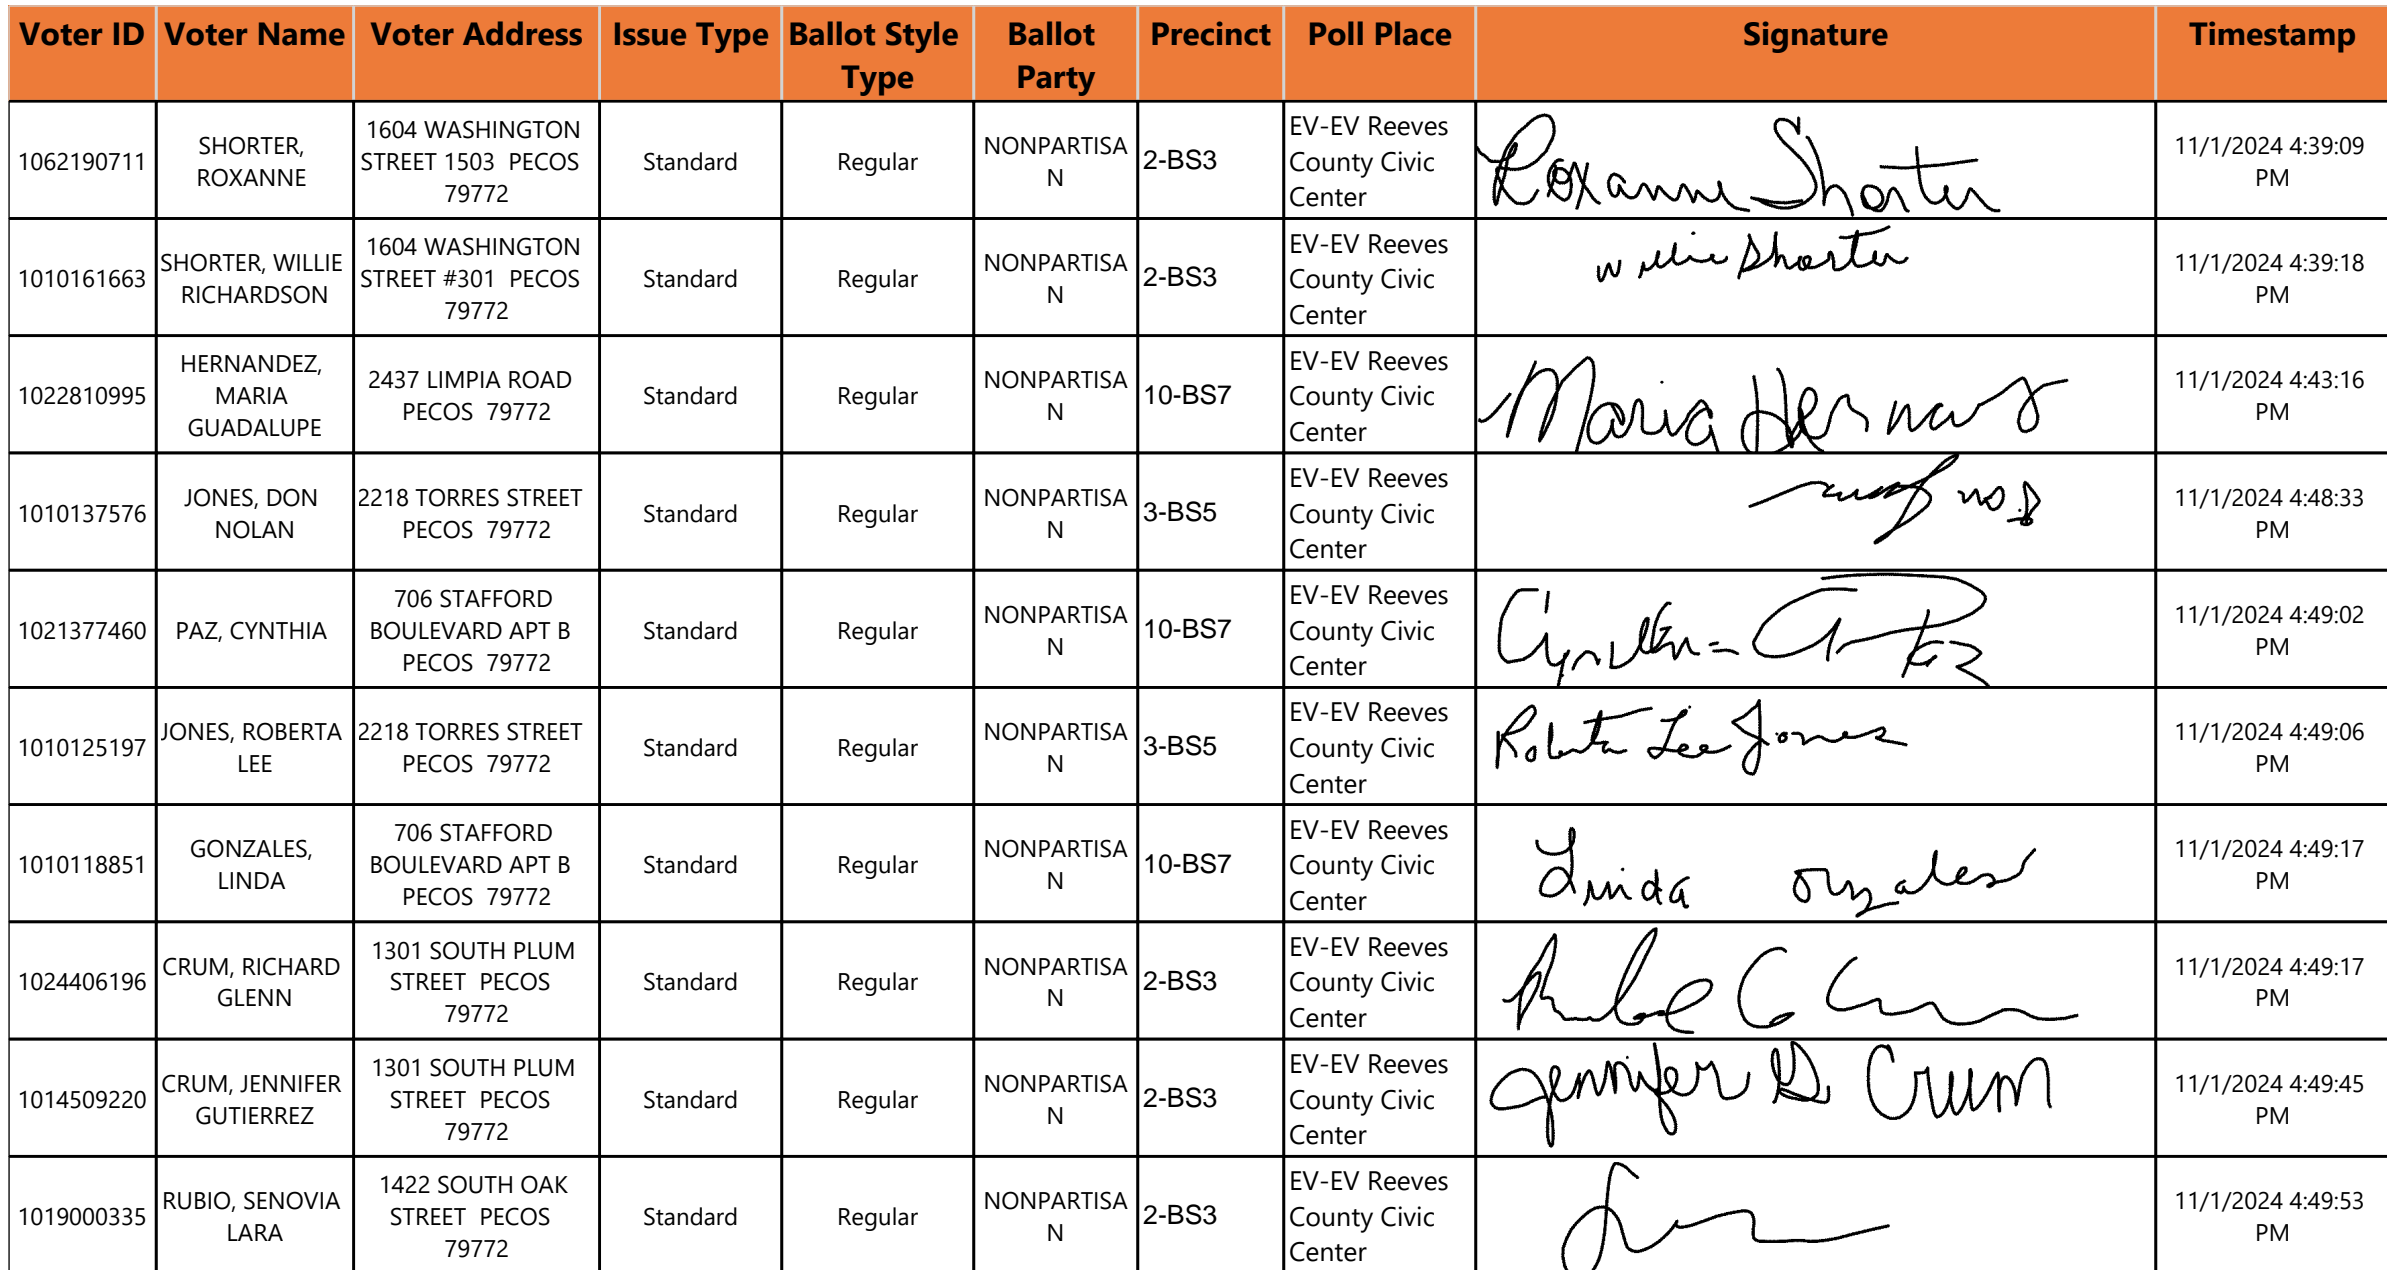 Voter ID Voter Name Voter Address Issue Type Ballot Style Type Ballot Party Precinct Poll Place Signature Timestamp
1062190711 SHORTER, ROXANNE 1604 WASHINGTON STREET 1503 PECOS 79772 Standard Regular NONPARTISAN 2-BS3 EV-EV Reeves County Civic Center Roxanne Shorter 11/1/2024 4:39:09 PM
1010161663 SHORTER, WILLIE RICHARDSON 1604 WASHINGTON STREET #301 PECOS 79772 Standard Regular NONPARTISAN 2-BS3 EV-EV Reeves County Civic Center Willie Shorter 11/1/2024 4:39:18 PM
1022810995 HERNANDEZ, MARIA GUADALUPE 2437 LIMPIA ROAD PECOS 79772 Standard Regular NONPARTISAN 10-BS7 EV-EV Reeves County Civic Center Maria 11/1/2024 4:43:16 PM
1010137576 JONES, DON NOLAN 2218 TORRES STREET PECOS 79772 Standard Regular NONPARTISAN 3-BS5 EV-EV Reeves County Civic Center 11/1/2024 4:48:33 PM
1021377460 PAZ, CYNTHIA 706 STAFFORD BOULEVARD APT B PECOS 79772 Standard Regular NONPARTISAN 10-BS7 EV-EV Reeves County Civic Center 11/1/2024 4:49:02 PM
1010125197 JONES, ROBERTA LEE 2218 TORRES STREET PECOS 79772 Standard Regular NONPARTISAN 3-BS5 EV-EV Reeves County Civic Center Roberta Lee Jones 11/1/2024 4:49:06 PM
1010118851 GONZALES, LINDA 706 STAFFORD BOULEVARD APT B PECOS 79772 Standard Regular NONPARTISAN 10-BS7 EV-EV Reeves County Civic Center Linda onzales 11/1/2024 4:49:17 PM
1024406196 CRUM, RICHARD GLENN 1301 SOUTH PLUM STREET PECOS 79772 Standard Regular NONPARTISAN 2-BS3 EV-EV Reeves County Civic Center 11/1/2024 4:49:17 PM
1014509220 CRUM, JENNIFER GUTIERREZ 1301 SOUTH PLUM STREET PECOS 79772 Standard Regular NONPARTISAN 2-BS3 EV-EV Reeves County Civic Center Jennifer G Crum 11/1/2024 4:49:45 PM
1019000335 RUBIO, SENOVIA LARA 1422 SOUTH OAK STREET PECOS 79772 Standard Regular NONPARTISAN 2-BS3 EV-EV Reeves County Civic Center 11/1/2024 4:49:53 PM